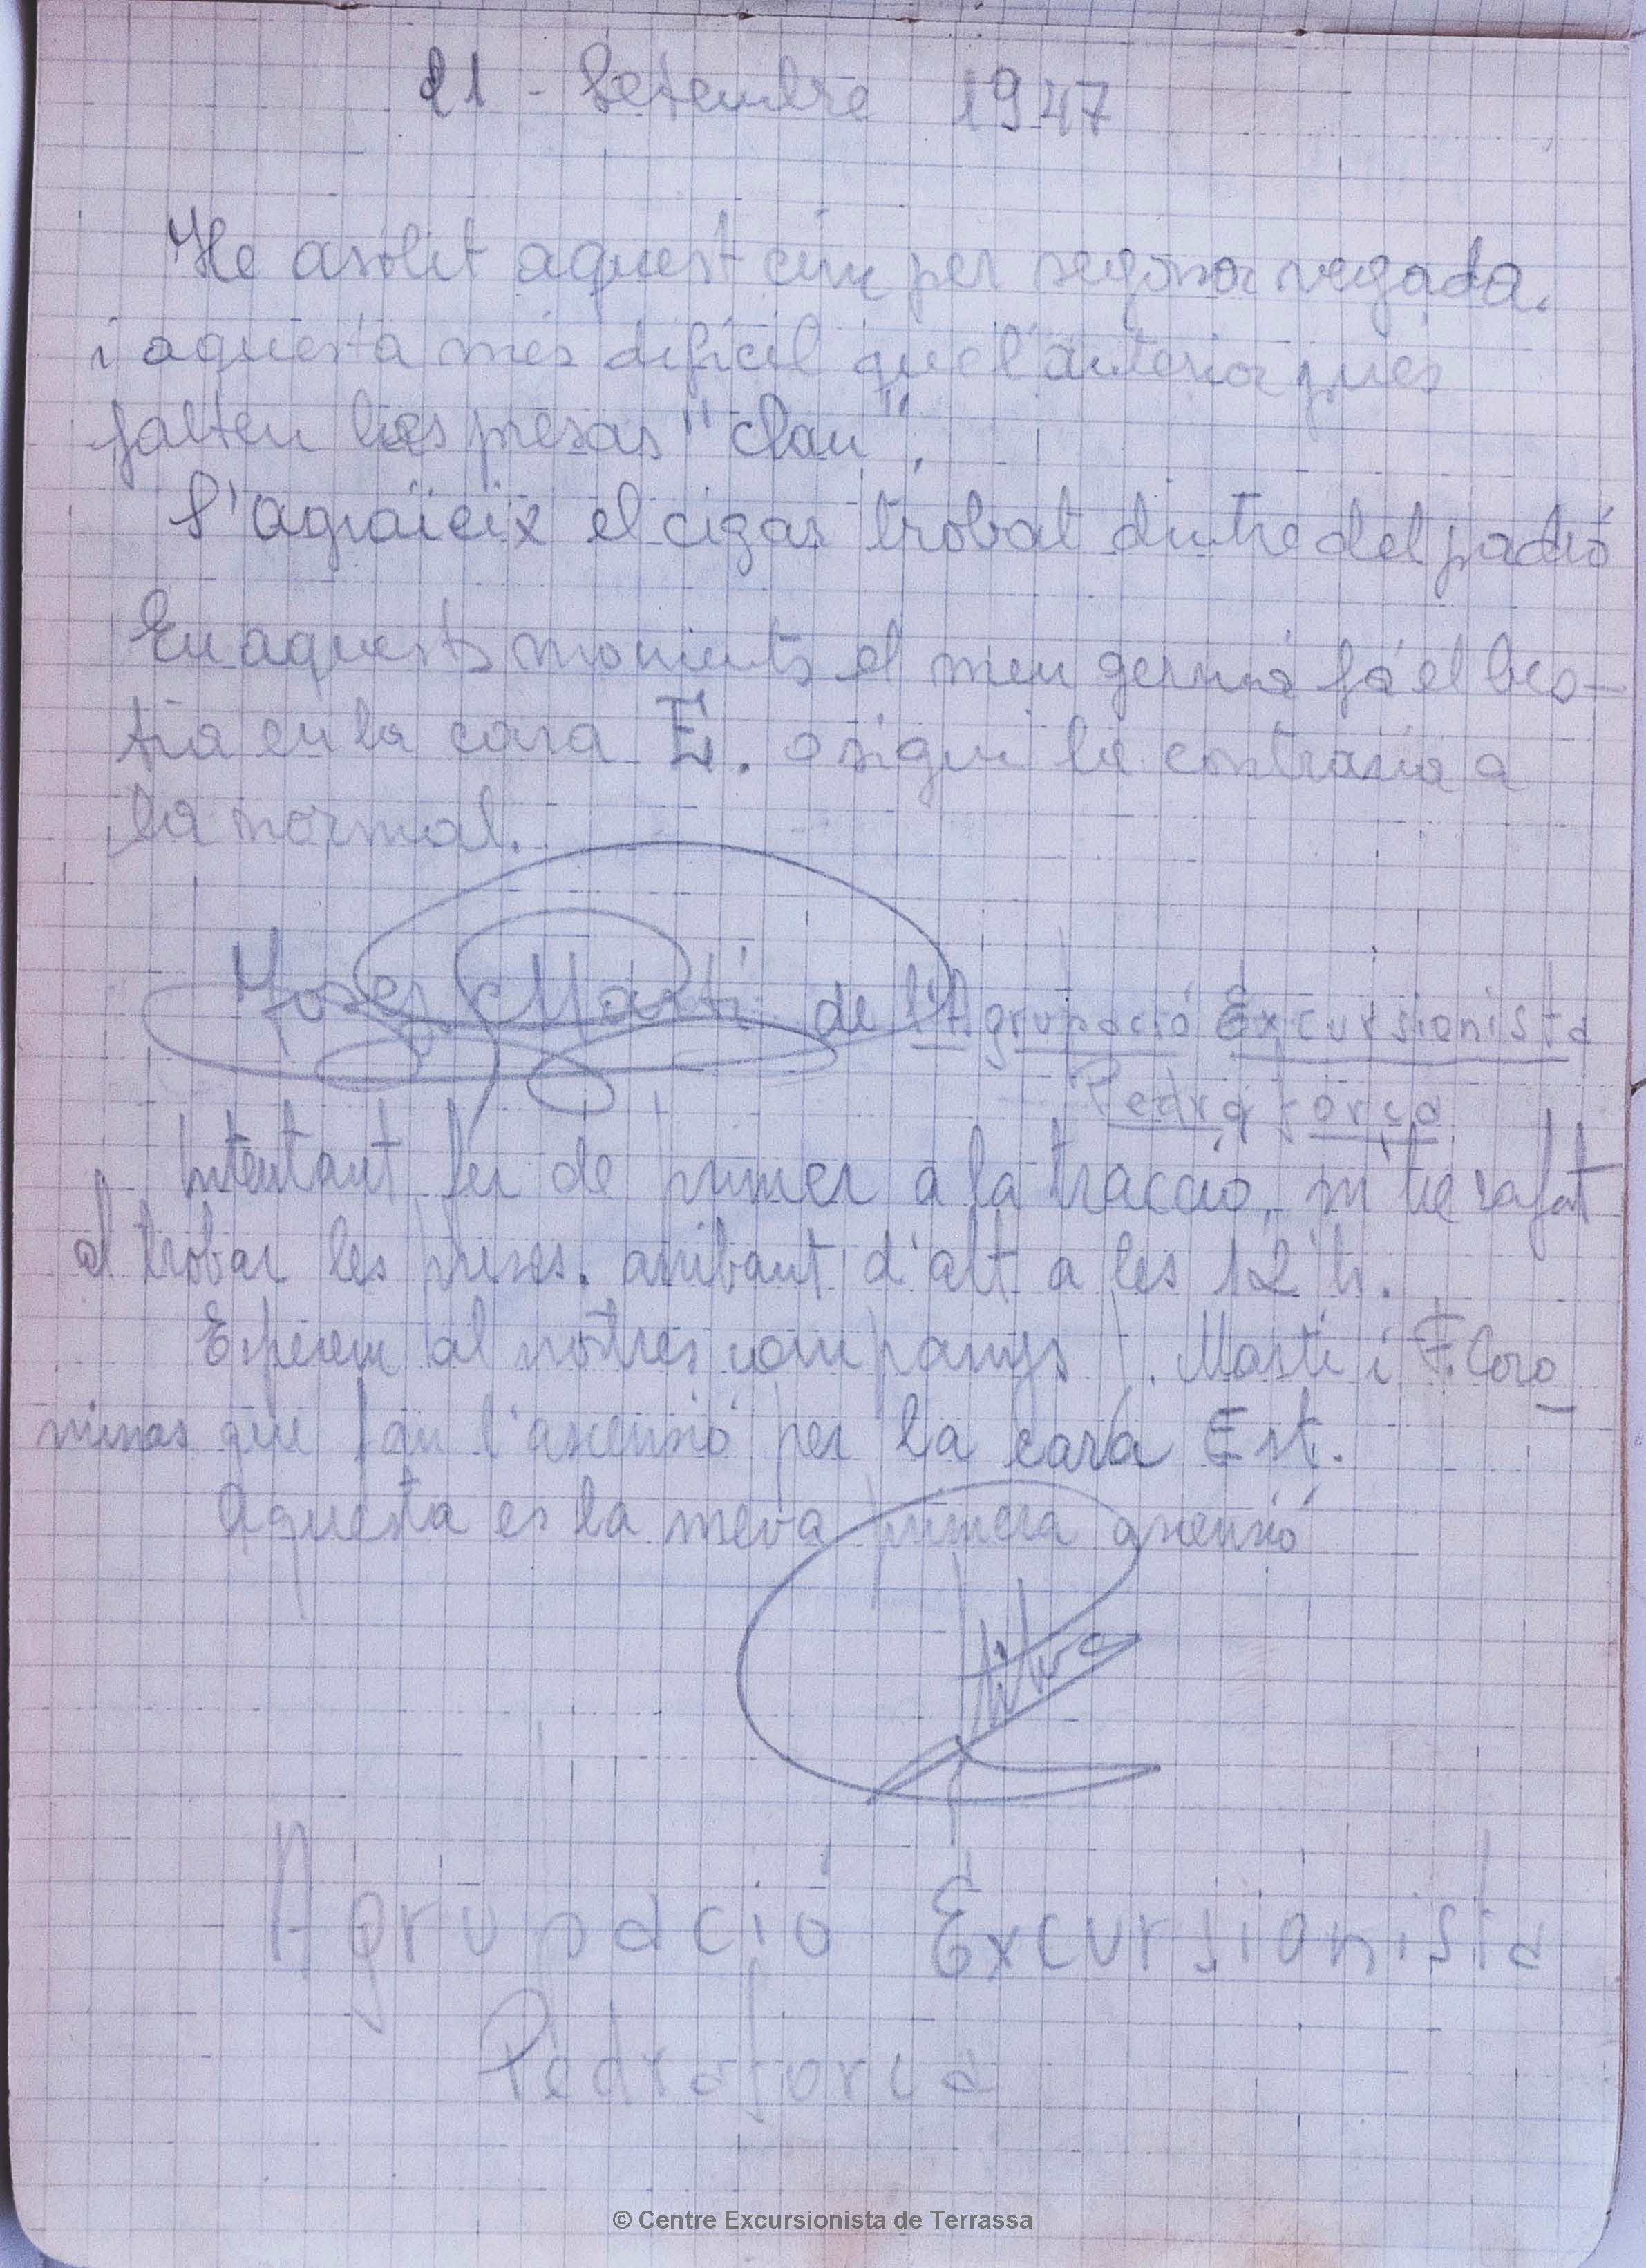 21 - Setembre 1947
He asolit aquest cim per segona vegada.
i aquesta més dificil que l'anterior pués
falten les presas "clau".
S'agraïeix el cigar trobat dintre del padró
En aquests moments el meu germá fá el bes-
tia en la cara E. osigui la contraria a
la normal.
Josep Martí de l'Agrupació Excursionista
Pedraforca
Intentant fer de primer a la tracció, m'he rafat
al trobar les preses. arribant d'alt a les 12 h.
Esperem al nostres companys J. Marti i F. Coro
minas que fan l'ascensió per la cara Est.
Aquesta es la meva primera ascensió
Agrupació Excursionista
Pedraforca
© Centre Excursionista de Terrassa